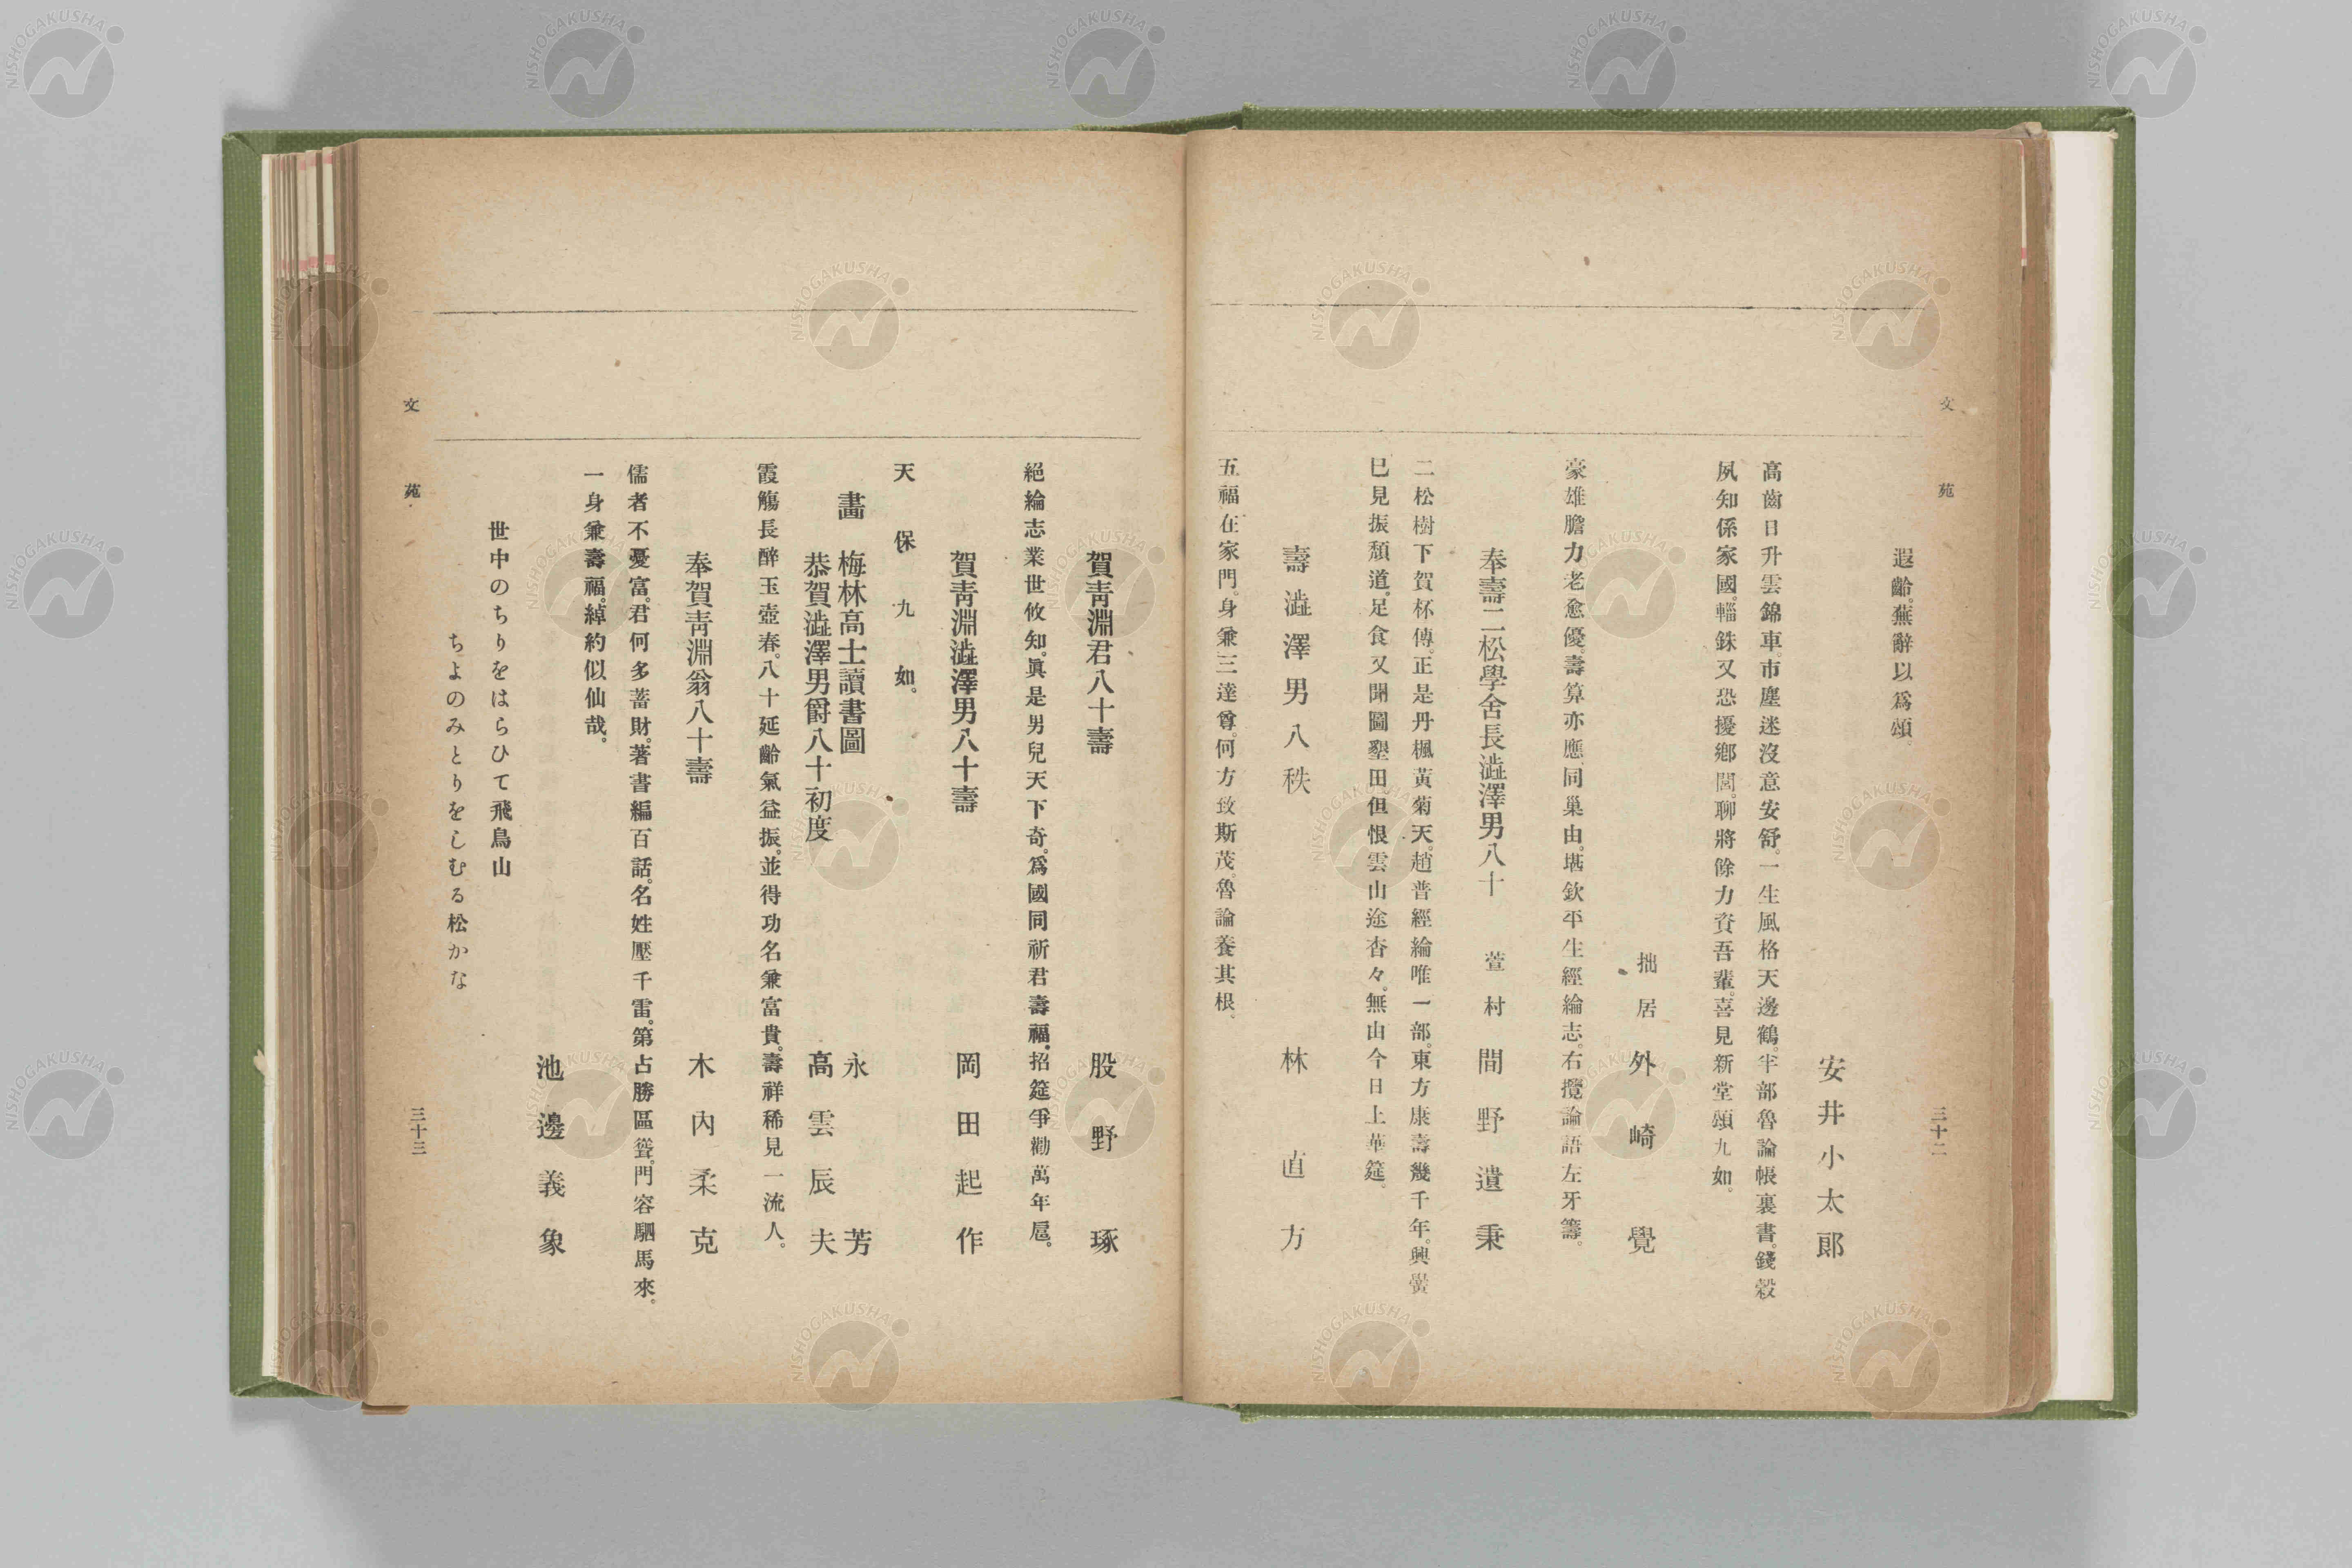 文苑
三十二
遐齡。蕪辭以爲頌。
安井小太郎
高齒日升雲錦車。市塵迷沒意安舒。一生風格天邊鶴。半部魯論帳裏書。錢穀
夙知係家國。輜銖又恐擾鄕閭。聊將餘力資吾輩。喜見新堂頌九如。
拙居 外崎覺
豪雄膽力老愈優。壽算亦應同巢由。堪欽平生經綸志。右攬論語左牙籌。
奉壽二松學舍長澁澤男八十 萱村 間野遺秉
二松樹下賀杯傳。正是丹楓黃菊天。趙普經綸唯一部。東方康壽幾千年。興黌
已見振頹道。足食又聞圖墾田但恨雲山途杳々。無由今日上華筵。
壽澁澤男八秩 林直方
五福在家門。身兼三達尊。何方致斯茂。魯論養其根。
賀靑淵君八十壽 股野琢
絕綸志業世攸知。眞是男兒天下奇。爲國同祈君壽福。招筵爭勸萬年巵。
賀靑淵澁澤男八十壽 岡田起作
天保九如。
畫 梅林高士讀書圖 永芳
恭賀澁澤男爵八十初度 高雲辰夫
霞觴長醉玉壺春。八十延齡氣益振。並得功名兼富貴。壽祥稀見一流人。
奉賀靑淵翁八十壽 木內柔克
儒者不憂富。君何多蓄財。著書編百話。名姓壓千雷。第占勝區聳。門容駟馬來。
一身兼壽福。綽約似仙哉。
池邊義象
世中のちりをはらひて飛鳥山
ちよのみとりをしむる松かな
文苑
三十三